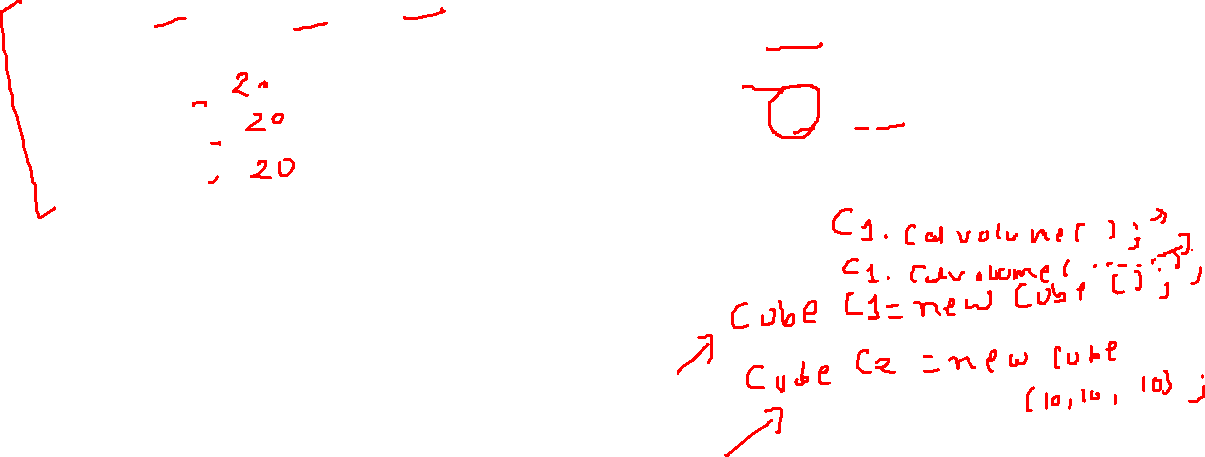 20
20
20
C1. calvolume( );
C1. calvolume( ------ );
Cube C1 = new Cube ();
Cube C2 = new Cube
(10, 10, 10);